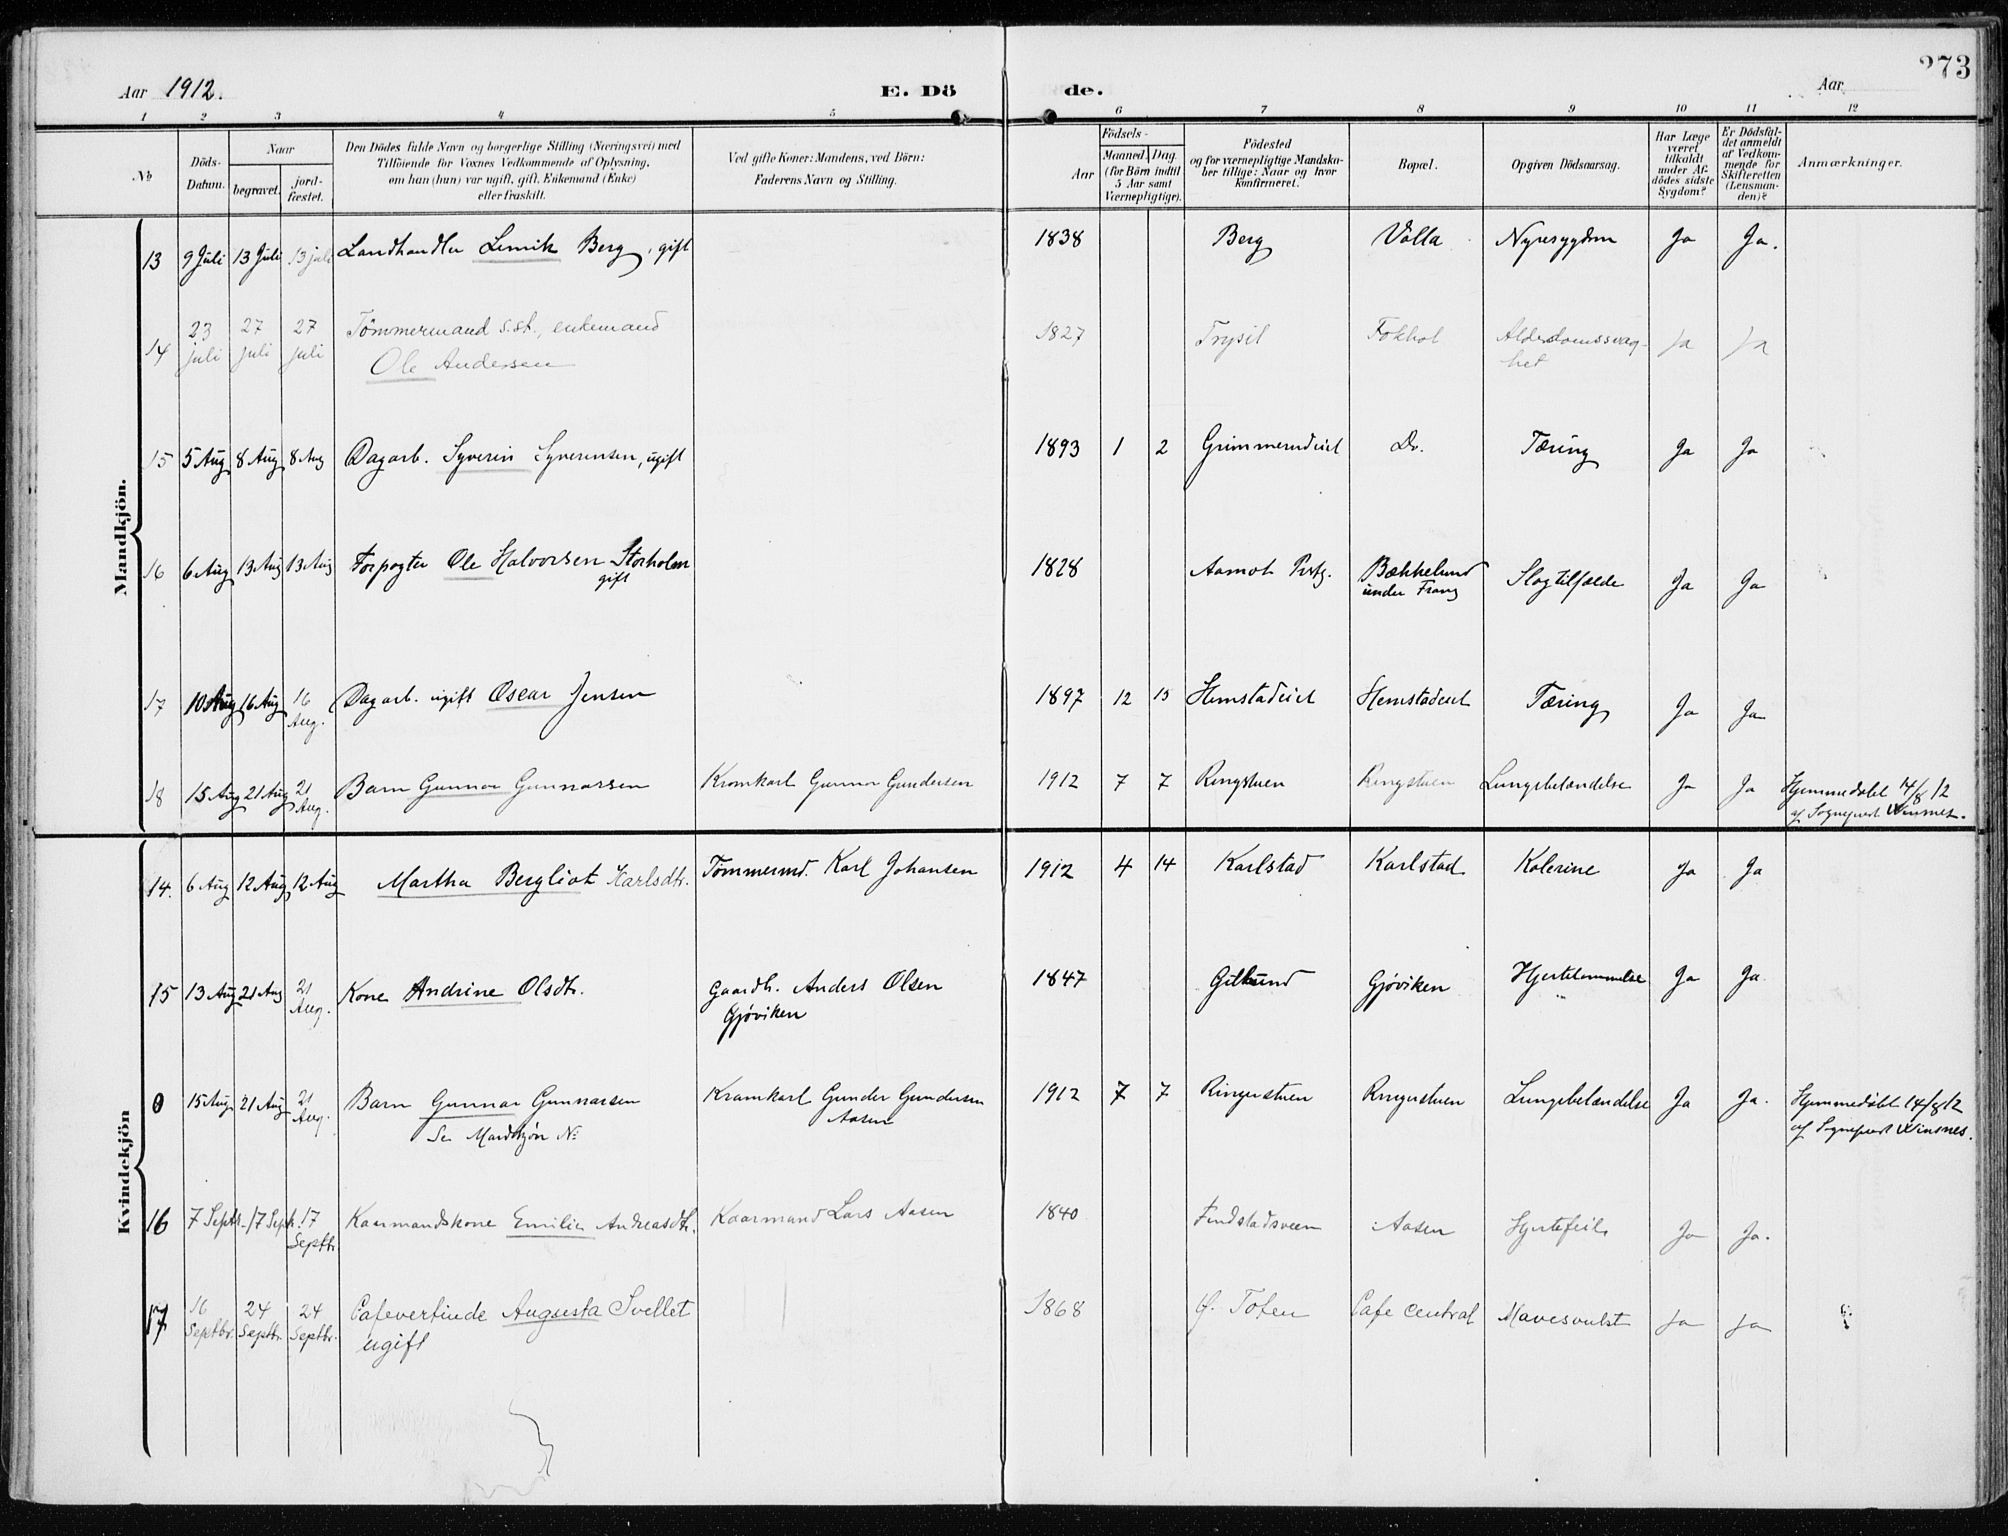 273
Aar 1912. E. Dö de. Aar
1 2 3 4 5 6 7 8 9 10 11 12
No
Döds-Datum.
Naar
begravet.
jord-fæstet.
Den Dödes fulde Navn og borgerlige Stilling (Næringsvei) med
Tilföiende for Voxnes Vedkommende af Oplysning,
om han (hun) var ugift, gift, Enkemand (Enke)
eller fraskilt.
Ved gifte Koner: Mandens, ved Börn:
Faderens Navn og Stilling.
Födsels-
Aar
Maaned. Dag
(for Börn indtil
5 Aar samt
Værnepligtige).
Födested
og for værnepligtige Mandska-
ber tillige: Naar og hvor
konfirmeret.
Bopæl.
Opgiven Dödsaarsag.
Har Læge
været
tilkaldt
under Af-
dödes sidste
Sygdom?
Er Dödsfal-
det anmeldt
af Vedkom-
mende for
Skifteretten
(Lensman-
den)?
Anmærkninger.
Mandkjön.
13 9 Juli 13 Juli 13 juli Landhandler Berg, gift 1838 Berg Volla Nyresygdom Ja Ja.
14 23 juli 27 juli 27 juli Tømmermand s.st., enkemand
Ole Andersen 1827 Trysil Fokhol Alderdomssvag-
het Ja Ja
15 5 Aug 8 Aug 8 Aug Dagarb. Syverin Syverinsen, ugift 1893 1 2 Grimmerudeiet Do. Tæring Ja Ja
16 6 Aug 13 Aug 13 Aug Forpagter Ole Halvorsen Storholm
gift 1828 Aamot Prstg. Bækkelund
under Frang Slagtilfælde Ja Ja
17 10 Aug 16 Aug 16 Aug. Dagarb. ugift Oscar Jensen 1897 12 13 Hemstadeiet Hemstadeiet Tæring Ja Ja
18 15 Aug 21 Aug 21 Aug. Barn Gunnar Gunnarsen Kramkarl Gunnar Gundersen 1912 7 7 Ringstuen Ringstuen Lungebetændelse Ja Ja Hjemmedøbt 14/8 12
af Sogneprest Winsnes.
Kvindekjön
14. 6 Aug 12 Aug 12 Aug Martha Bergliot Karlsdtr. Tømmermd. Karl Johansen 1912 4 14 Karlstad Karlstad Kolerine Ja Ja
15 13 Aug 21 Aug 21 Aug. Kone Andrine Olsdtr. Gaardbr. Anders Olsen
Gjøviken 1847 Gillund Gjøviken Hjertelammelse Ja Ja
0 15 Aug 21 Aug 21 Aug. Barn Gunnar Gunnarsen
Se Mandskjøn No: Kramkarl Gunder Gundersen
Aasen 1912 7 7 Ringerstuen Ringerstuen Lungebetændelse Ja Ja. Hjemmedøbt 14/8 12
af Sogneprest Winsnes.
16 7 Septbr. 17 Sept. 17 Septbr. Kaarmandskone Emilie Andreasdtr. Kaarmand Lars Aasen 1840 Findstadsveen Aasen Hjertefeil Ja Ja.
17 16 Septbr. 24 Septbr. 24 Septbr. Cafevertinde Augusta Svellet
ugift 1868 Ø. Toten Cafe Central Mavesvulst Ja Ja